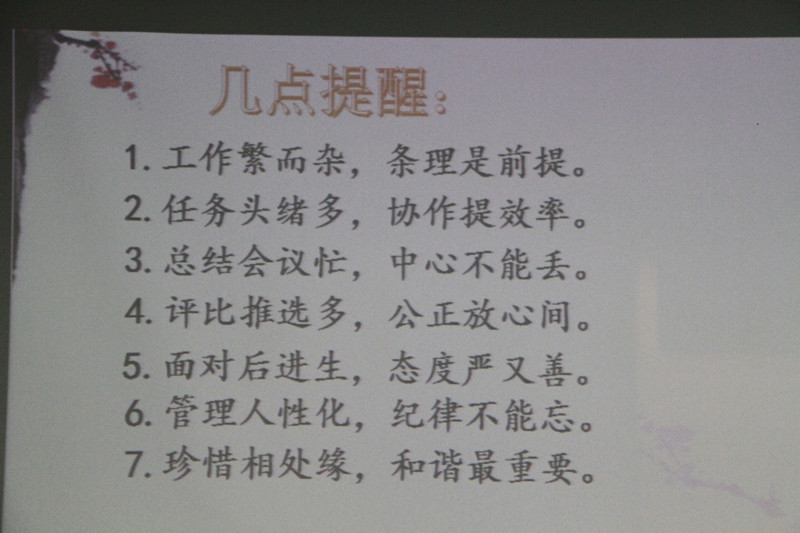 几点提醒:
1. 工作繁而杂，条理是前提。
2. 任务头绪多，协作提效率。
3. 总结会议忙，中心不能丢。
4. 评比推选多，公正放心间。
5. 面对后进生，态度严又善。
6. 管理人性化，纪律不能忘。
7. 珍惜相处缘，和谐最重要。